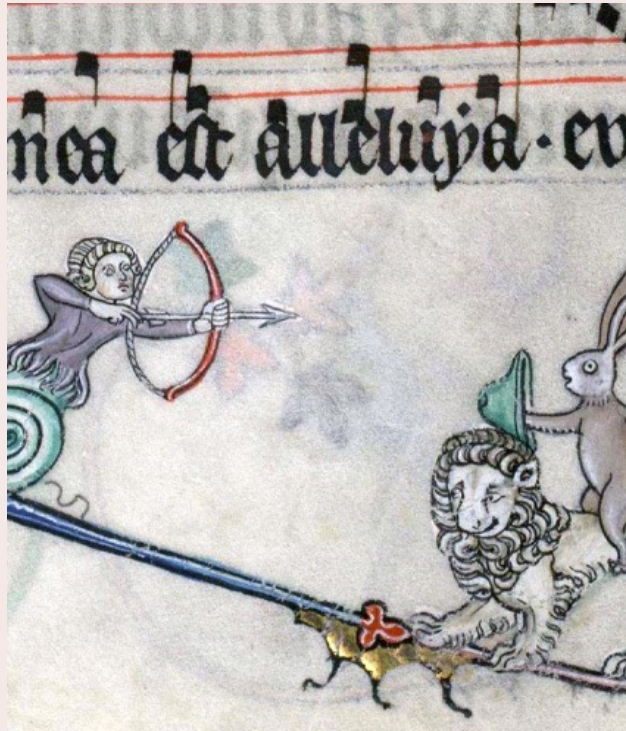 nea est alleluẏa · ev